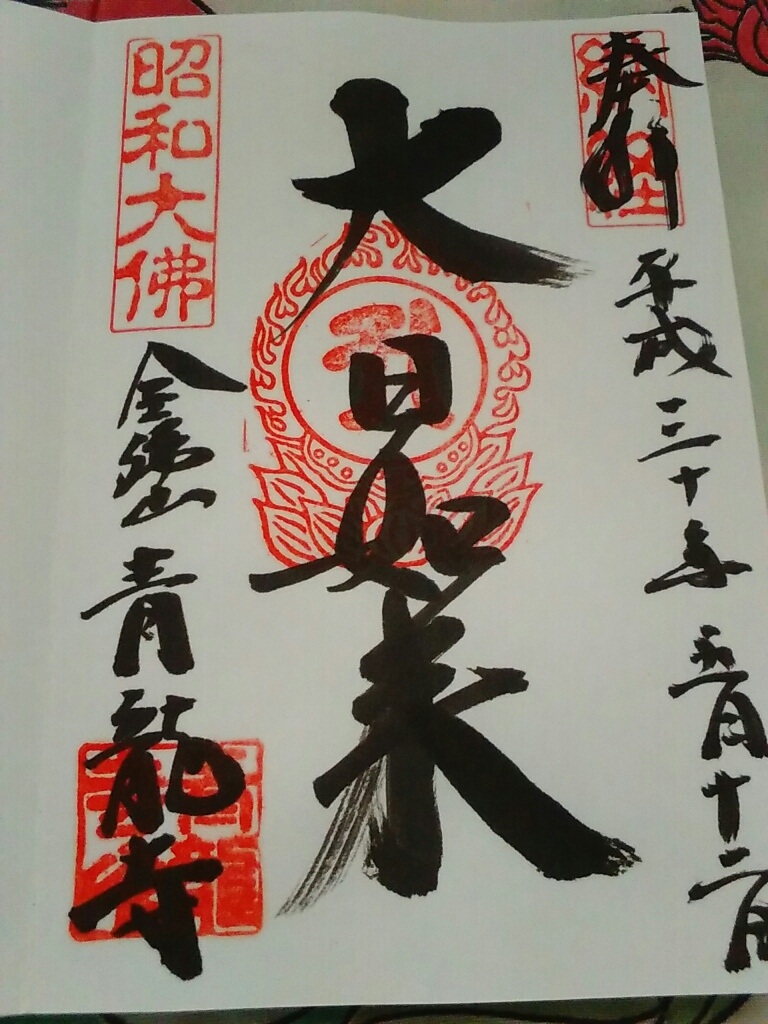 奉拝
納経
平成三十年五月十二日
大日如来
昭和大佛
全佛山青龍寺